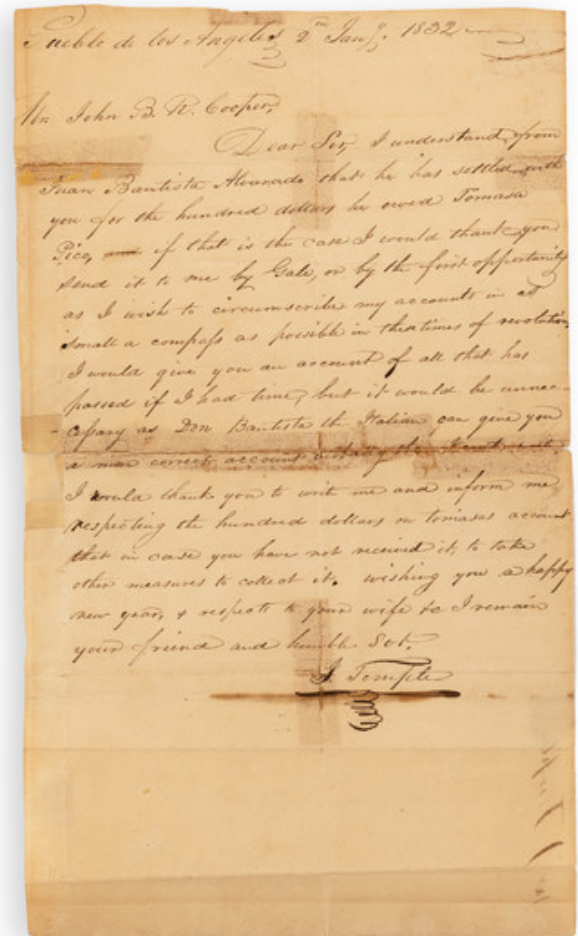 Pueblo de los Angeles 2nd Jany. 1832
Mr John B. R. Cooper,
Dear Sir, I understand from
Juan Bautista Alvarado that he has settled with
you for the hundred dollars he owed Tomasa
Pico, if that is the case I would thank you
send it to me by Gale, or by the first opportunity
as I wish to circumscribe my accounts in as
small a compass as possible in these times of revolution,
I would give you an account of all that has
passed if I had time, but it would be unnec-
-cessary as Don Bautista the Italian can give you
a more correct account
I would thank you to write me and inform me
respecting the hundred dollars on tomasas account
that in case you have not received it, to take
other measures to collect it. wishing you a happy
new year, & respects to your wife &c I remain
your friend and humble Svt.
J. Temple